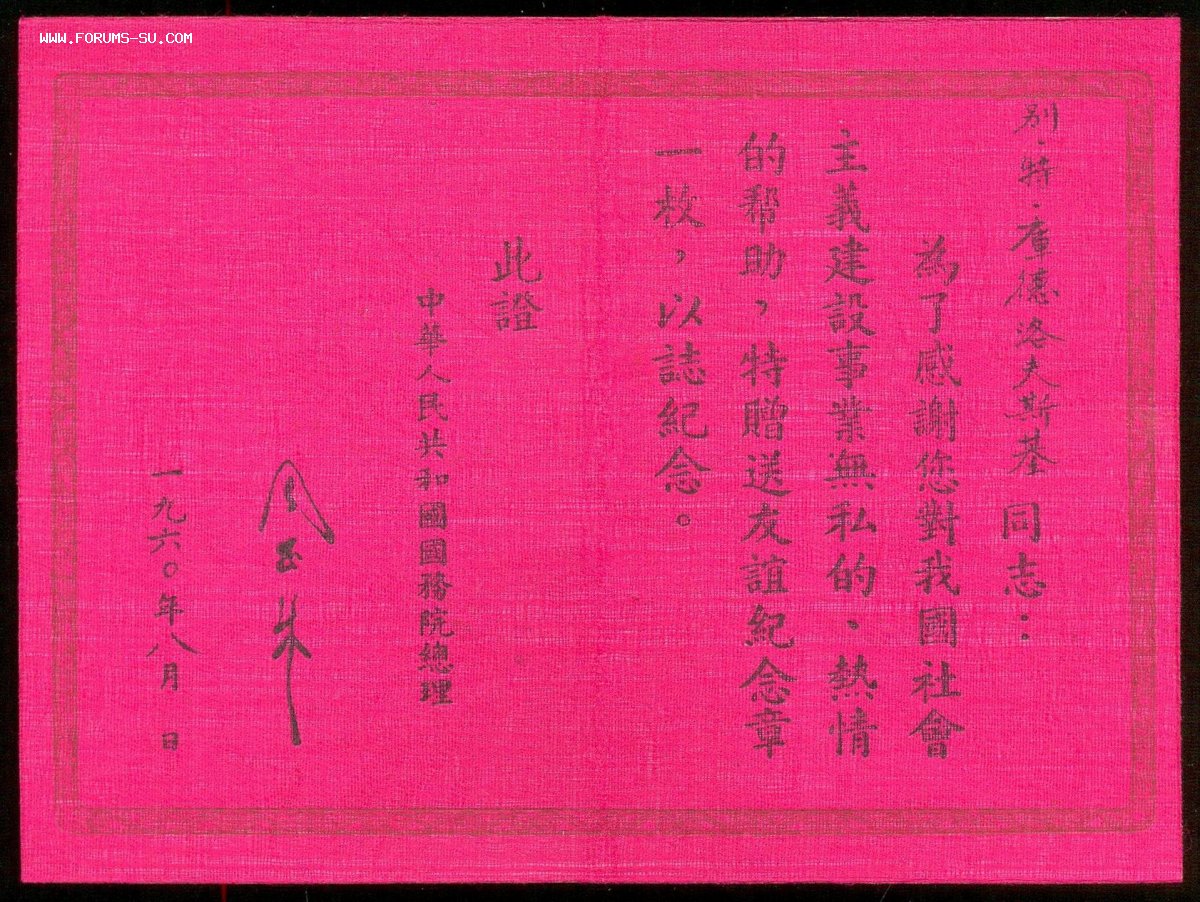 WWW.FORUMS-SU.COM
别·特·庫德洛夫斯基 同志：
為了感謝您對我國社會
主義建設事業無私的、熱情
的帮助，特贈送友誼紀念章
一枚，以誌紀念。
此證
中華人民共和國國務院總理
周恩來
一九六〇年八月 日